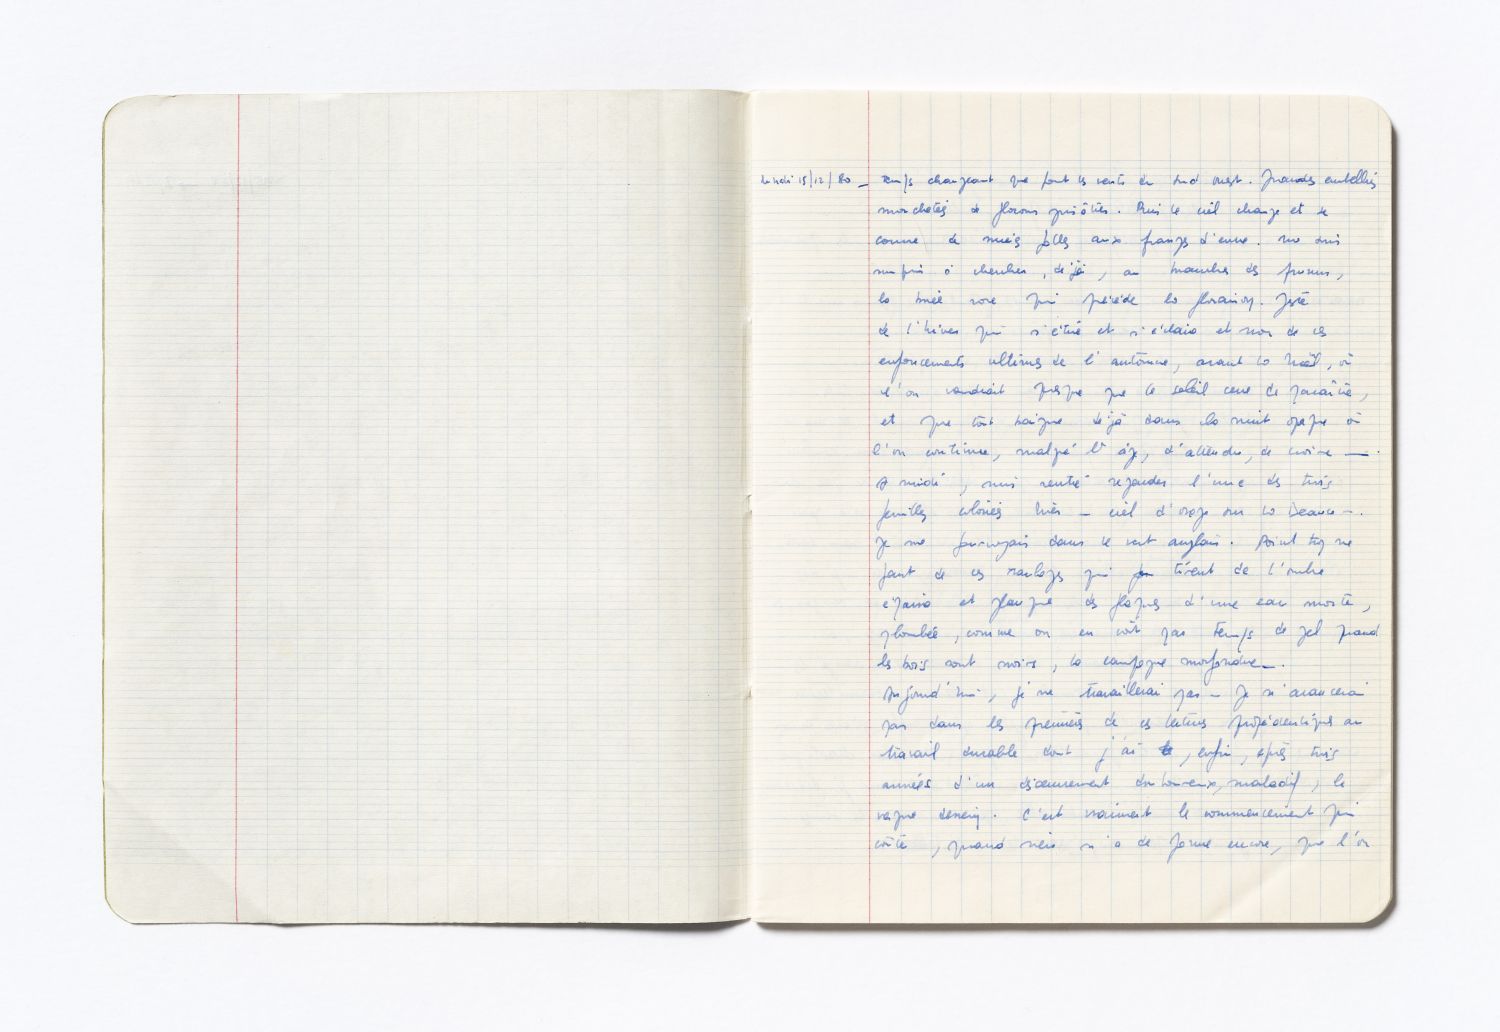 lundi 15/12/80 _ Temps changeant que font les vents du sud ouest. Grandes embellies
mouchetées de flocons Puis le ciel change et se
couvre de nuées folles aux franges d'encre. me suis
surpris à chercher, déjà, au branches des pruniers,
la buée rose qui précède la floraison. Juste
de l'hiver qui s'étire et s'éclaire et non de ces
enfoncements ultimes de l'automne, avant la Noël, où
l'on voudrait presque que le soleil cesse de paraître,
et que tout baigne déjà dans la nuit opaque où
l'on continue, malgré l'âge, d'attendre, de croire —.
A midi, suis rentré regarder l'une des trois
feuilles coloriées hier – ciel d'orage sur la Beauce –.
Je me fourvoyais dans le vert anglais. Point trop ne
faut de ces qui tirent de l'ombre
épaisse et glauque des flaques d'une eau morte,
plombée, comme on en voit par temps de gel quand
les bois sont noirs, la campagne morfondue –.
Aujourd'hui, je ne travaillerai pas – Je n'avancerai
pas dans les premières de ces lectures propédeutiques au
travail durable dont j'ai , enfin, après trois
années d'un désoeuvrement douloureux, maladif, le
vague dessein. C'est vraiment le commencement qui
coûte, quand rien n'a de forme encore, que l'on